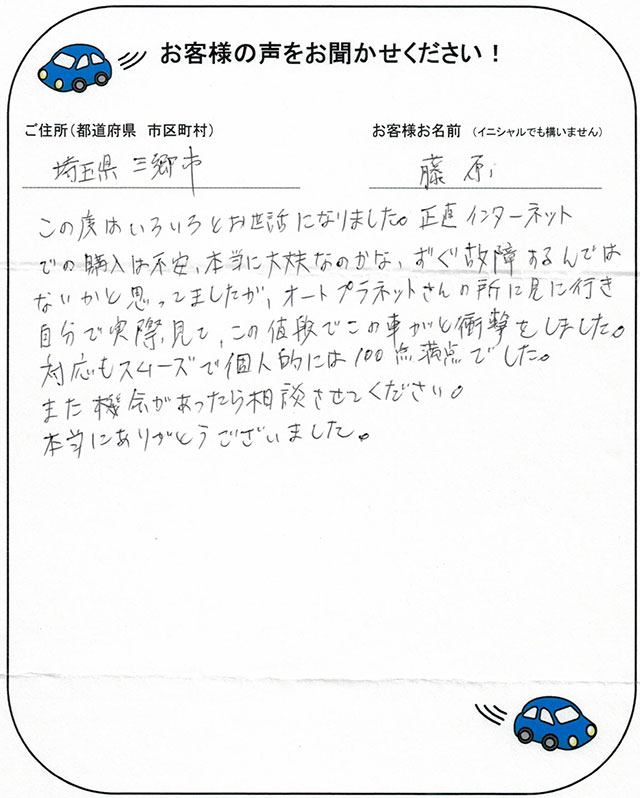 お客様の声をお聞かせください！
ご住所（都道府県 市区町村）
お客様お名前 （イニシャルでも構いません）
埼玉県 三郷市
藤原
この度はいろいろとお世話になりました。正直インターネット
での購入は不安、本当に大丈夫なのかな、すぐ故障するんでは
ないかと思ってましたが、オートプラネットさんの所に見に行き
自分で実際、見て、この値段でこの車かと衝撃をしました。
対応もスムーズで個人的には100点満点でした。
また機会があったら相談させてください。
本当にありがとうございました。